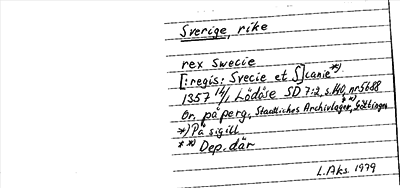 Sverige, rike
rex Swecie
[:regis: Svecie et S]canie*)
1357 14/1 Lödöse SD 7:2, s.140, nr 5688
Or. på perg., Staatliches Archivlager, Göttingen
*) På sigill
**) Dep. där
L.Aks. 1979